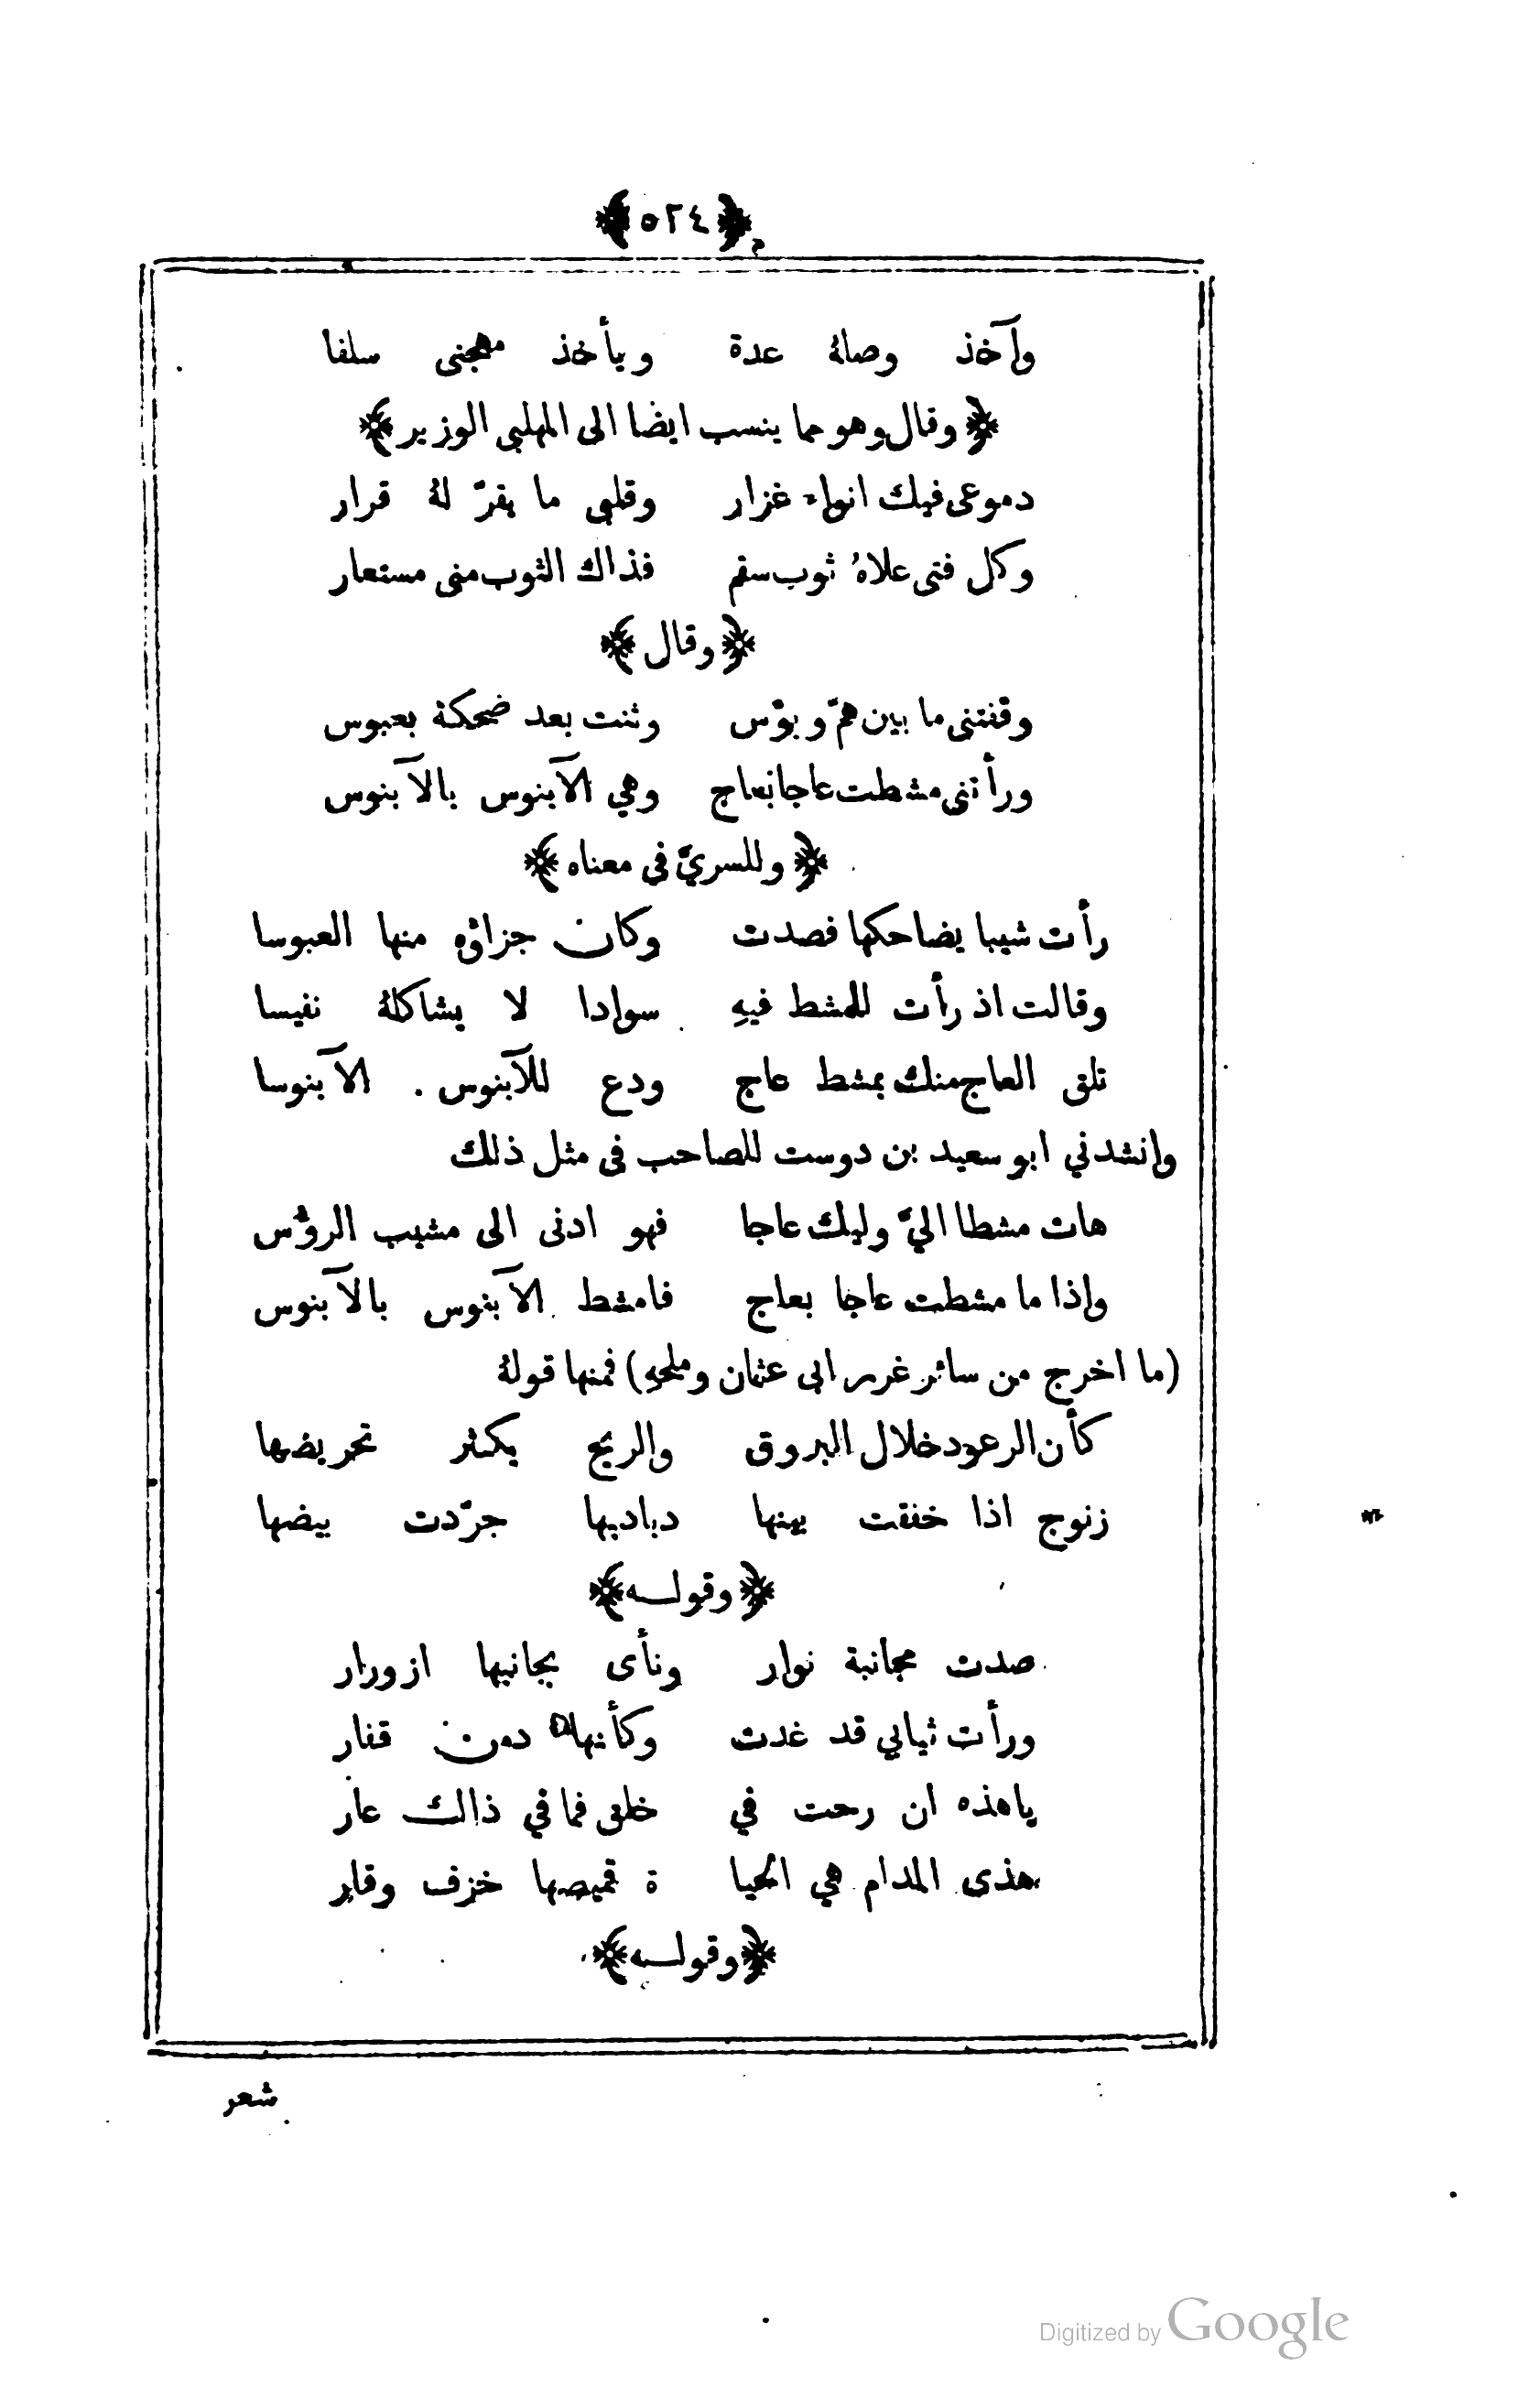 ﴿٥٢٤﴾
وآخذ وصلهُ عدة ويأخذ مهجتى سلفا
﴿وقال وهو مما ينسب ايضا الى المهلبي الوزير﴾
دموعى فيك انواء غزار وقلبى ما يقرّ لهُ قرار
وكل فتى علاهُ ثوب سقم فذاك الثوب منى مستعار
﴿وقال﴾
وقفتنى ما بين همّ وبؤس وثنت بعد ضحكة بعبوس
ورأتنى مشطت عاجا بعاج وهي الآبنوس بالآبنوس
﴿وللسريّ فى معناه﴾
رأت شيبا يضاحكها فصدت وكان جزاؤه منها العبوسا
وقالت اذ رأت للمشط فيهِ سوادا لا يشاكلهُ نفيسا
تلق العاج منك بمشط عاج ودع للآبنوس الآبنوسا
وانشدني ابو سعيد بن دوست للصاحب فى مثل ذلك
هات مشطا اليّ وليك عاجا فهو ادنى الى مشيب الرؤس
واذا ما مشطت عاجا بعاج فامشط الآبنوس بالآبنوس
(ما اخرج من سائر غرر ابى عثمان وملحهِ) فمنها قولهُ
كأن الرعود خلال البروق والريح يكثر تحريضها
زنوج اذا خفقت بينها دبادبها جرّدت بيضها
﴿وقوله﴾
صدت مجانبة نوار ونأى بجانبها ازورار
ورأت ثيابي قد غدت وكأنها دمن قفار
ياهذه ان رحت في خلق فما في ذاك عار
هذى المدام هي الحيا ة قميصها خزف وقار
﴿وقوله﴾
شعر
Digitized by Google